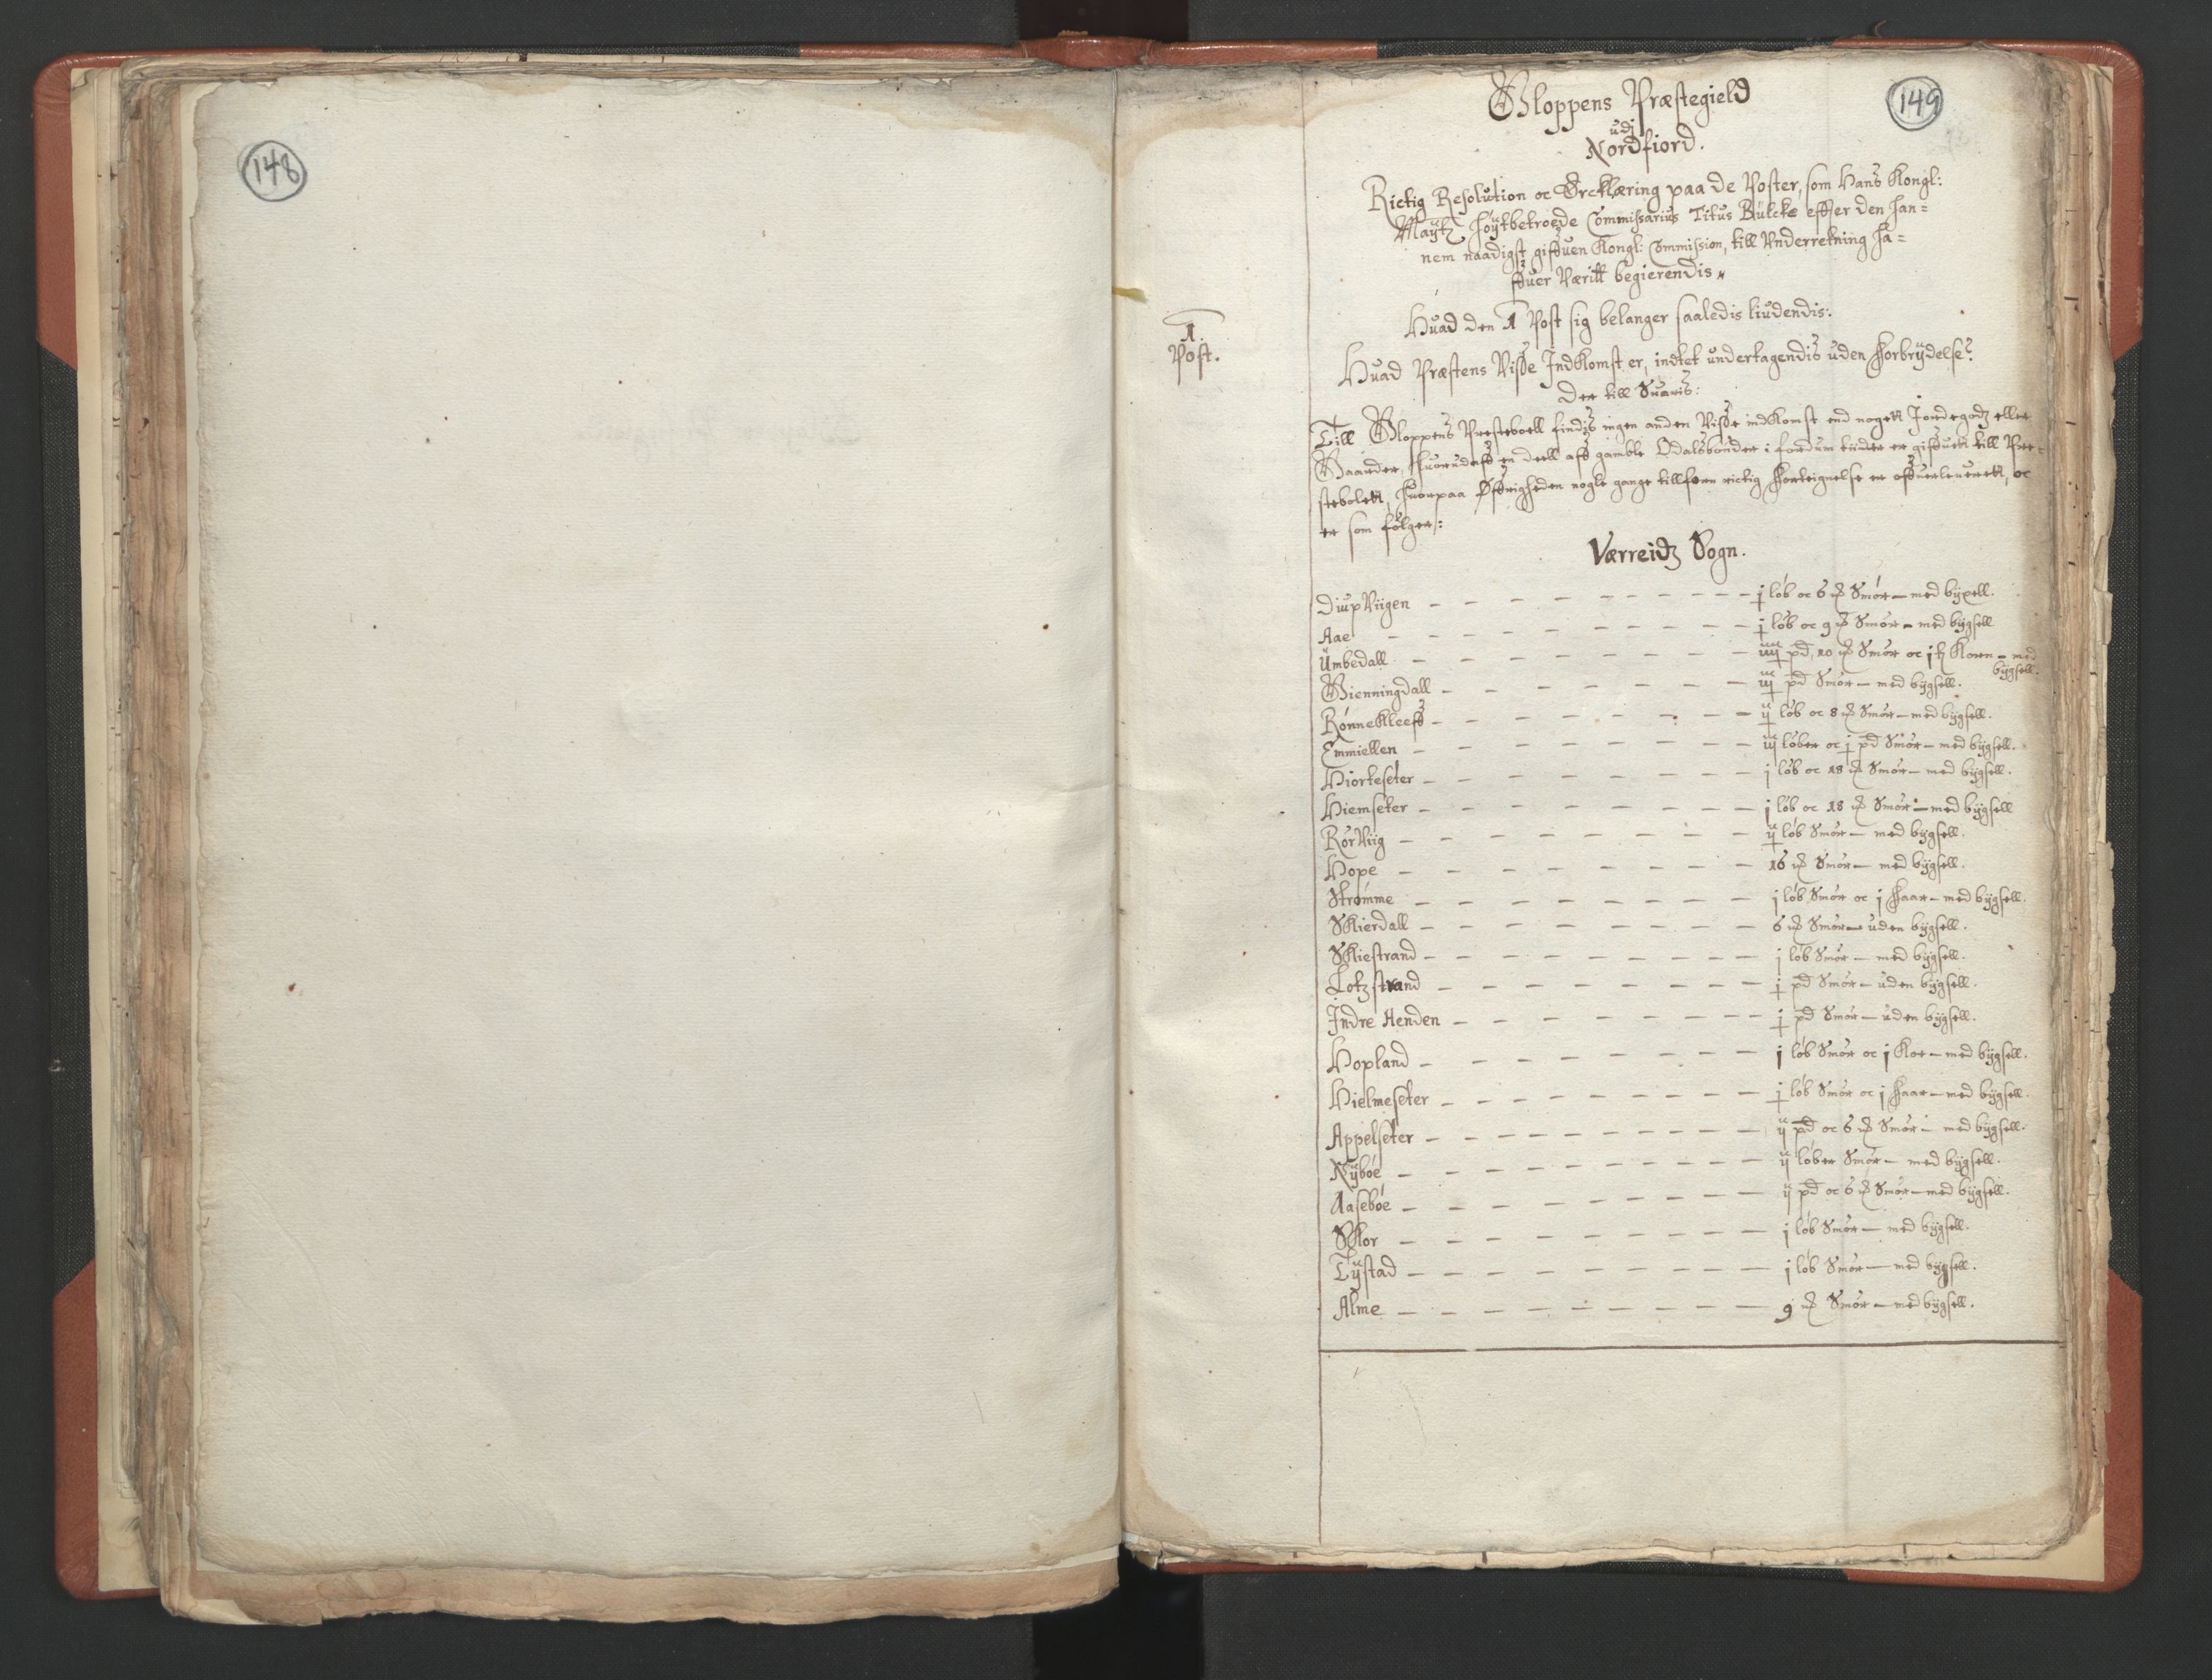 148
149
Gloppens Præstegield
udj
Nordfiord.
Rictig Resolution oc Ercklæring paa de Poster, som Hans Kongl:
Maytz höytbetroede Commissarius Titus Bülcke effter den han=
nem naadigst giffuen Kongl: Commission, till Vnderretning ha=
ffuer Værritt begierendis
1.
Post.
Huad den 1 Post sig belanger saaledis liudendis:
Huad Præstens Visse Indkomst er, indtet undertagendis uden Forbrydelse?
Der till Suaris:
Till Gloppens Presteboell findis ingen anden Visse indkomst end nogett Jordegodz eller
Gaarder, huorudaff en deell aff gamble Odalsbönder i fordum tiider er giffuett till Pre=
stebolett, huorpaa Øffrigheden nogle gange tillforn rictig Forteignelse er offuerleuerett, oc
er som fölger:
Værreidz Sogn.
DiupViigen — j löb oc 6 ₰ Smör — med bÿxell.
Aae — j löb oc 9 ₰ Smör — med bÿgsell
Umbedall — iiij pd, 10 ₰ Smör oc j Korn — med
bÿgsell.
Gienningdall — iij pd Smör — med bÿgsell.
RönneKleeff — ij löb oc 8 ₰ Smör — med bÿgsell.
Emmiellen — iij löber oc j pd Smör — med bÿgsell.
Hiorteseter — j löb oc 18 ₰ Smör — med bÿgsell.
Hiemseter — j löb oc 18 ₰ Smör — med bÿgsell
RörViig — ij löb Smör — med bÿgsell.
Hope — 16 ₰ Smör — med bÿgsell.
Strömme — j löb Smör oc j Faar — med bÿgsell.
Skierdall — 6 ₰ Smör — uden bÿgsell.
Skiestrand — j löb Smör — med bÿgsell.
Lotzstrand — j pd Smör — uden bÿgsell.
Indre Henden — j pd Smör — uden bÿgsell.
Hopland — j löb Smör oc j Koe — med bÿgsell.
Hielmeseter — j löb Smör oc j Faar — med bÿgsell.
Appelseter — ij pd oc 6 ₰ Smör — med bÿgsell.
Nÿböe — ij löber Smör — med bÿgsell.
Aaseböe — ij pd oc 6 ₰ Smör — med bÿgsell.
Skor — j löb Smör — med bÿgsell.
Tÿstad — j löb Smör — med bÿgsell.
Alme — 9 ₰ Smör — med bÿgsell.